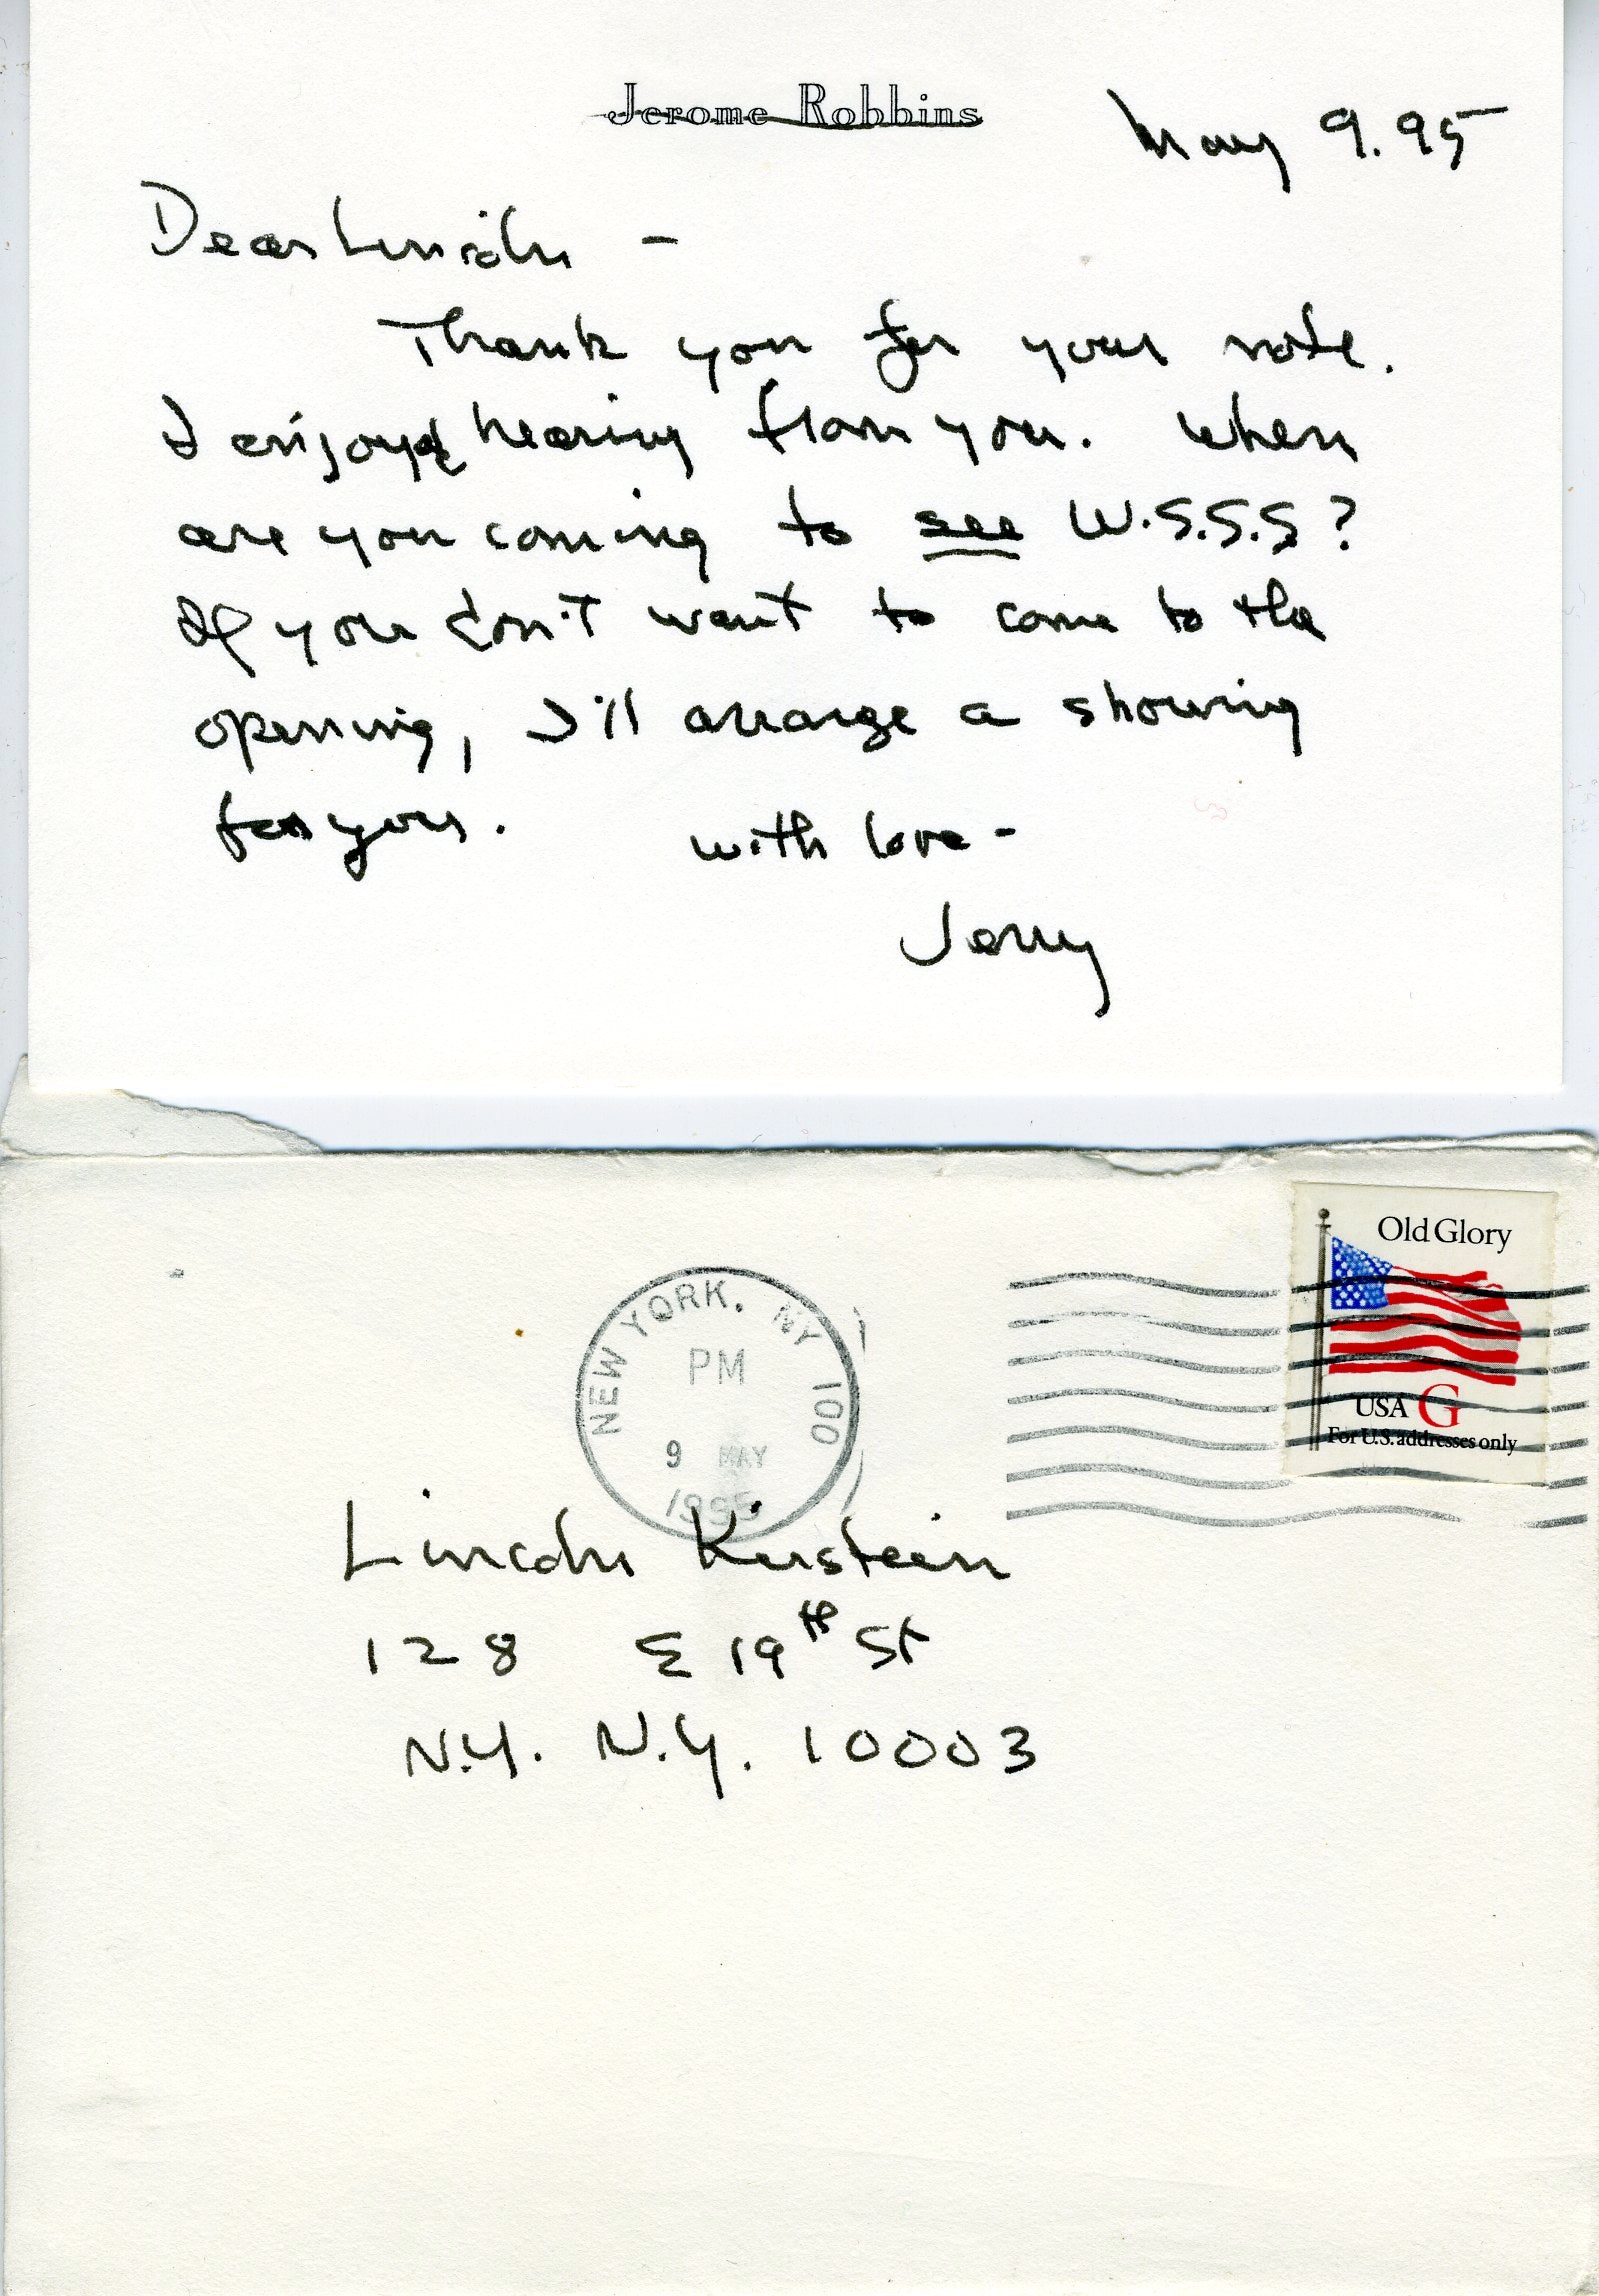 Jerome Robbins
May 9. 95
Dear Lincoln -
Thank you for your note.
I enjoyed hearing from you. When
are you coming to see W.S.S.S?
If you don't want to come to the
opening, I'll arrange a showing
for you.
with love -
Jerry
Old Glory
USA G
For U.S. addresses only
NEW YORK, NY 100
PM
9 MAY
1995
Lincoln Kirstein
128 E 19th St
N.Y. N.Y. 10003